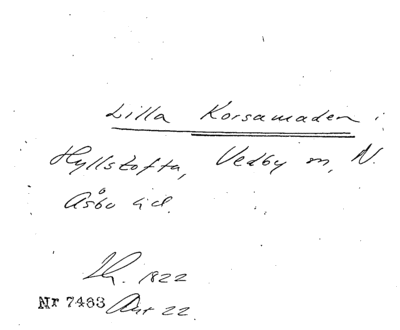 Lilla Korsamaden i
Hyllstofta, Vedby sn, N.
Åsbo hd.
Lh. 1822
Nr 7483 Akt 22.